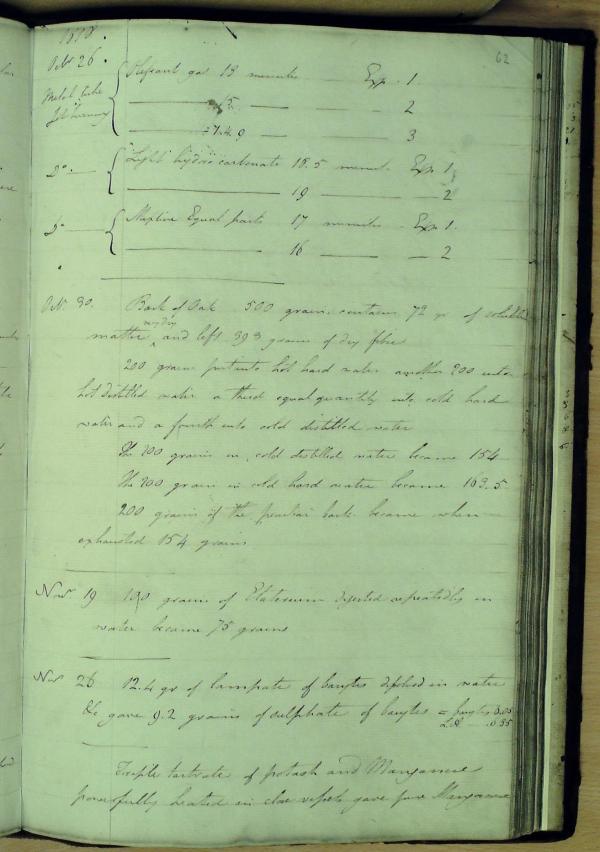 1818.
62
Octr 26.
Metal tube
Jet burning
Olefiant gas 18 minutes Exp. 1
15 2
17.4.9 3
Do
Light hydro carbonate 18.5 minut. Exp 1
19 2
Do
Mixture Equal parts 17 minutes Exp 1.
16 2
Oct. 30. Bark of Oak 500 grains contains 72 gr of soluble
very dry
matter and left 393 grains of dry fibre
200 grains put into hot hard water another 200 into
hot distilled water a third equal quantity into cold hard
water and a fourth into cold distilled water
The 200 grains in cold distilled water became 154
The 200 grain in cold hard water became 163.5
200 grains of the peculiar bark became when
exhausted 154 grains
Novr 19 100 grains of Elaterium digested repeatedly in
water became 75 grains
Novr 26 12.4 gr of lampate of barytes dissolved in water
&c gave 9.2 grains of sulphate of barytes = barytes 6.05
L.A.
Triple tartrate of potash and Manganese
powerfully heated in close vessels gave pure Manganese